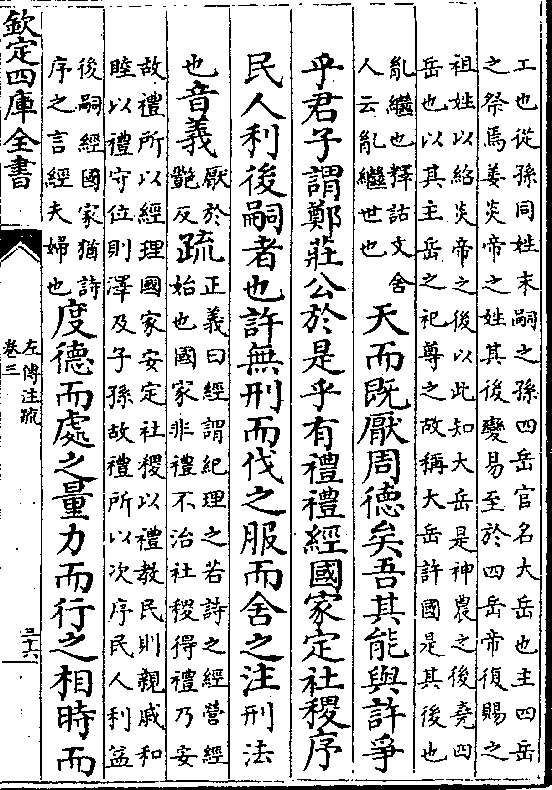 工也從孫同姓末嗣之孫四岳官名大岳也主四岳
之祭焉姜炎帝之姓其後變易至於四岳帝復賜之
祖姓以紹炎帝之後以此知大岳是神農之後堯四
岳也以其主岳之祀尊之故稱大岳許國是其後也
胤繼也釋詁文舍
人云胤繼世也
天而既厭周德矣吾其能與許爭
乎君子謂鄭莊公於是乎有禮禮經國家定社稷序
民人利後嗣者也許無刑而伐之服而舍之注刑法
也音義
厭於
艷反
疏
正義曰經謂紀理之若詩之經營經
始也國家非禮不治社稷得禮乃安
故禮所以經理國家安定社稷以禮教民則親戚和
睦以禮守位則澤及子孫故禮所以次序民人利益
後嗣經國家猶詩
序之言經夫婦也
度德而處之量力而行之相時而
欽定四庫全書
左傳注疏
卷三
三十六